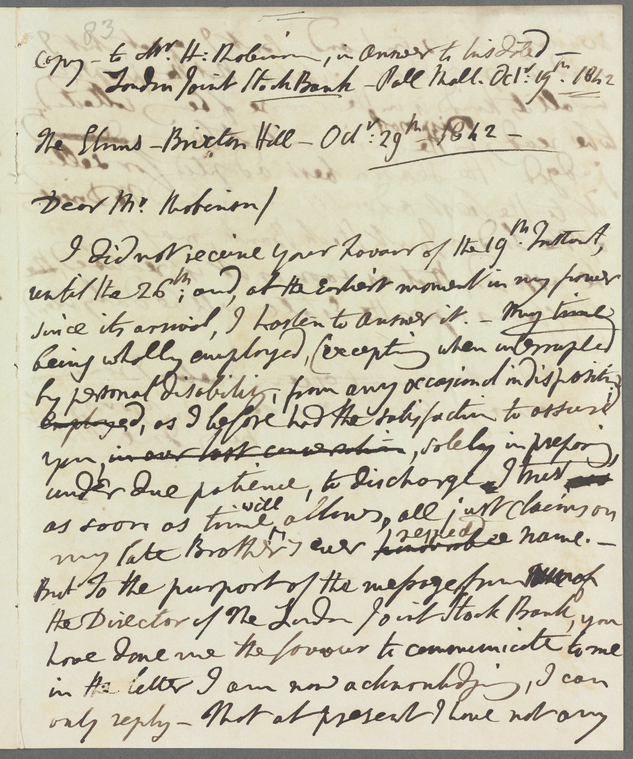 83
Copy - to Mr. H: Robinson, in Answer to his dated -
London Joint Stock Bank - Pall Mall. Octr. 19th. 1842
The Elms - Brixton Hill - Octr. 29th - 1842 -
Dear Mr. Robinson/
I did not receive your favour of the 19th Instant,
until the 26th; and, at the Earliest moment in my power
since its arrival, I hasten to answer it. - My time
being wholly employed, (excepting when interrupted
by personal disability, from any occasional indisposition
employed, as I before had the satisfaction to assure
you, in our last conversation, solely in preparing
under due patience, to discharge, I trust
as soon as time will allow, all just claims on
my late Brother's ever respected name. -
But to the purport of the message from
the Director of The London Joint Stock Bank, you
have done me the favour to communicate to me
in the letter I am now acknowledging, I can
only reply - That at present I have not any